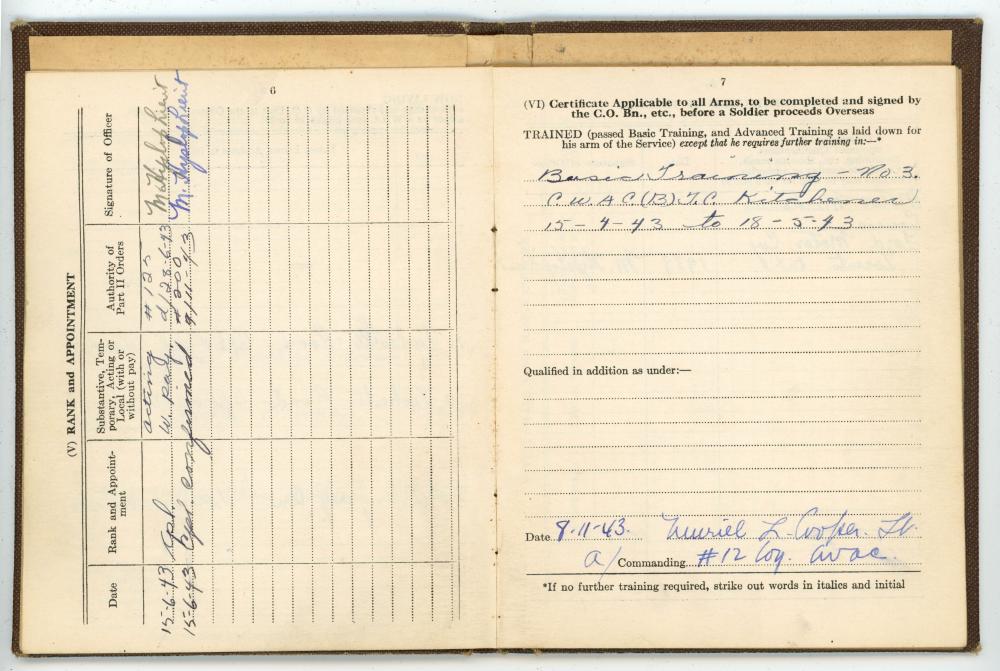 6
(V) RANK and APPOINTMENT
Date
Rank and Appoint-
ment
Substantive, Tem-
porary, Acting or
Local (with or
without pay)
Authority of
Part II Orders
Signature of Officer
15-6-43 Cpl. acting # 125
W. Pay. d/28-6-43
15-6-43 Cpl. confirmed # 200
9/11-43
7
(VI) Certificate Applicable to all Arms, to be completed and signed by
the C.O. Bn., etc., before a Soldier proceeds Overseas
TRAINED (passed Basic Training, and Advanced Training as laid down for
his arm of the Service) except that he requires further training in:—*
Basic Training - No 3.
C.W.A.C.(B)T.C. Kitchener
15-4-43 to 18-5-43
Qualified in addition as under:—
Date 8-11-43. Muriel L. Cooper. Lt.
A/Commanding #12 Coy. CWAC.
*If no further training required, strike out words in italics and initial